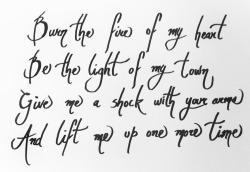 Burn the fire of my heart
Be the light of my town
Give me a shock with your arms
And lift me up one more time